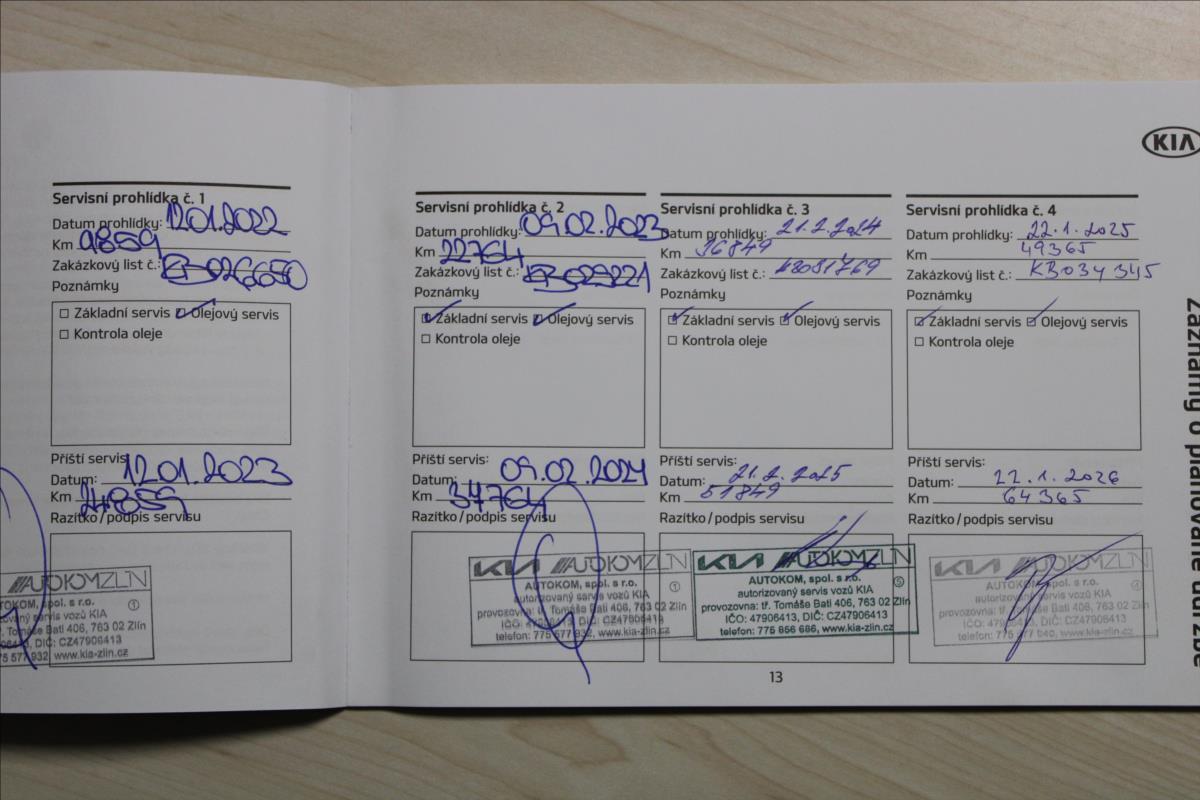 KIA
Servisní prohlídka č. 1
Datum prohlídky: 12.01.2022
Km 9859
Zakázkový list č.: KB026650
Poznámky
Základní servis Olejový servis
Kontrola oleje
Příští servis:
Datum: 12.01.2023
Km 24859
Razítko/podpis servisu
AUTOKOMZLÍN
TOKOM, spol. s r.o.
rizovaný servis vozů KIA
Tomáše Bati 406, 763 02 Zlín
, DIČ: CZ47906413
75 577 932 www.kia-zlin.cz
Servisní prohlídka č. 2
Datum prohlídky: 09.02.2023
Km 22764
Zakázkový list č.: KB029221
Poznámky
Základní servis Olejový servis
Kontrola oleje
Příští servis:
Datum: 09.02.2024
Km 37764
Razítko/podpis servisu
KIA AUTOKOMZLÍN
AUTOKOM, spol. s r.o. 1
autorizovaný servis vozů KIA
provozovna: tř. Tomáše Bati 406, 763 02 Zlín
IČO: 47906413, DIČ: CZ47906413
telefon: 775 577 932, www.kia-zlin.cz
Servisní prohlídka č. 3
Datum prohlídky: 21.2.2024
Km 36849
Zakázkový list č.:
Poznámky
Základní servis Olejový servis
Kontrola oleje
Příští servis:
Datum: 21.2.2025
Km 51849
Razítko/podpis servisu
KIA AUTOKOMZLÍN
AUTOKOM, spol. s r.o. 5
autorizovaný servis vozů KIA
provozovna: tř. Tomáše Bati 406, 763 02 Zlín
IČO: 47906413, DIČ: CZ47906413
telefon: 775 656 686, www.kia-zlin.cz
Servisní prohlídka č. 4
Datum prohlídky: 22.1.2025
Km 49365
Zakázkový list č.: KB034345
Poznámky
Základní servis Olejový servis
Kontrola oleje
Příští servis:
Datum: 22.1.2026
Km 64365
Razítko/podpis servisu
KIA AUTOKOMZLÍN
AUTOKOM, spol. s r.o.
autorizovaný servis vozů KIA
provozovna: tř. Tomáše Bati 406, 763 02 Zlín
IČO: 47906413, DIČ: CZ47906413
telefon: 775 577 040, www.kia-zlin.cz
13
Záznamy o plánované údržbě